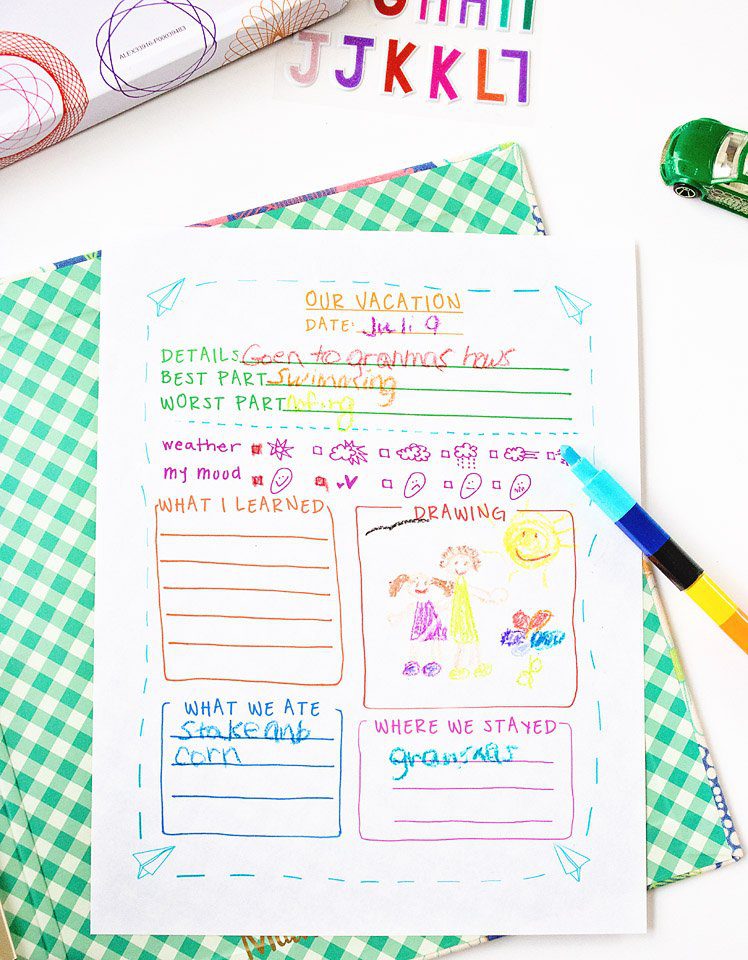 ALEX33916-P00039483
JJKKL
OUR VACATION
DATE: Juli 9
DETAILS Goen to granmas haws
BEST PART Swimming
WORST PART
weather
my mood
WHAT I LEARNED
DRAWING
WHAT WE ATE
Stake and
corn
WHERE WE STAYED
granmas